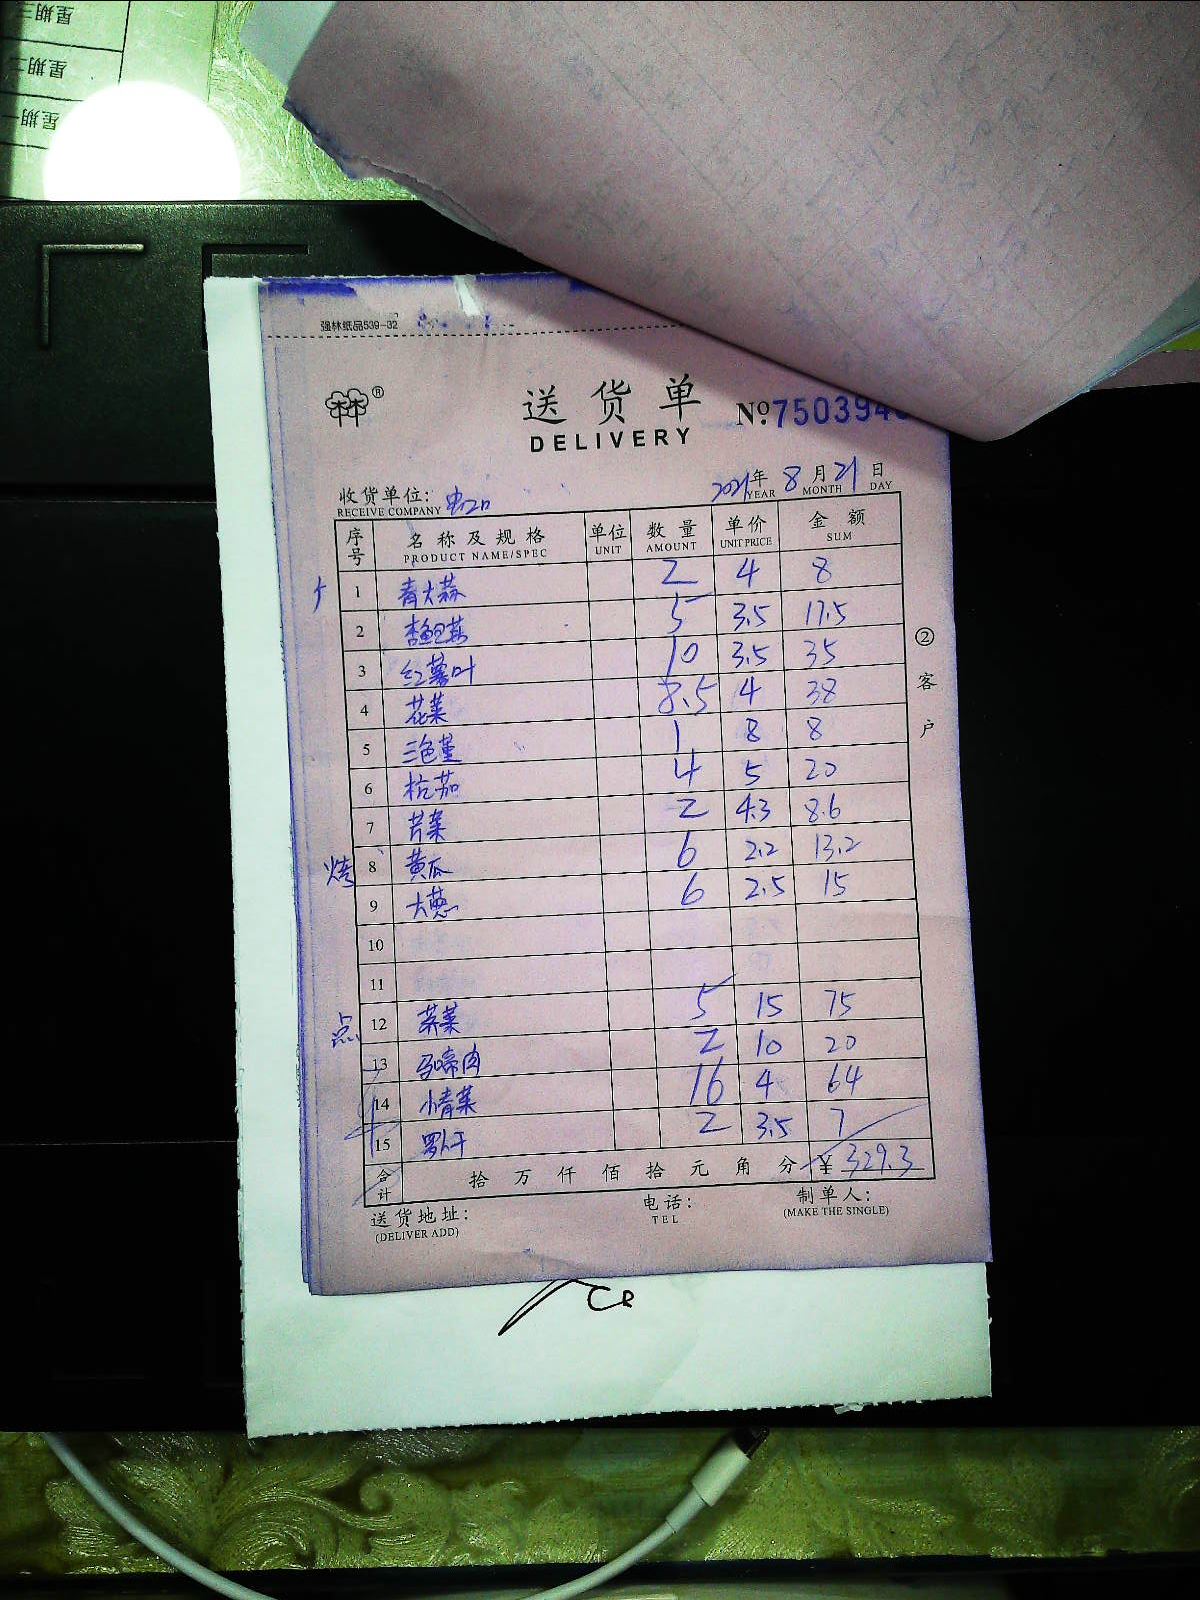 星期三
星期二
星期一
强林纸品539-32
林林®
送货单
DELIVERY
№750394
收货单位:
RECEIVE COMPANY
2021年 8月21日
YEAR MONTH DAY
序号 名称及规格 单位 数量 单价 金额
PRODUCT NAME/SPEC UNIT AMOUNT UNIT PRICE SUM
1 青大蒜 2 4 8
2 杏鲍菇 5 3.5 17.5
3 红薯叶 10 3.5 35
4 花菜 8.5 4 38
5 三色堇 1 8 8
6 杭茄 4 5 20
7 芹菜 2 4.3 8.6
烤 8 黄瓜 6 2.2 13.2
9 大葱 6 2.5 15
10
11
点 12 荠菜 5 15 75
13 马啼肉 2 10 20
14 小青菜 16 4 64
15 罗卜干 2 3.5 7
合计 拾万仟佰拾元角分 ¥ 329.3
送货地址: 电话: 制单人:
(DELIVER ADD) TEL (MAKE THE SINGLE)
②客户